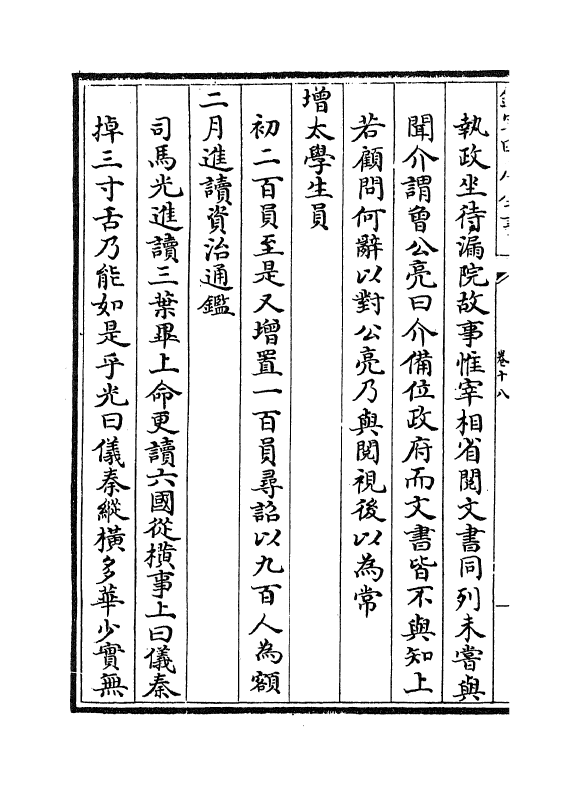 卷十八
執政坐待漏院故事惟宰相省閱文書同列未嘗與
聞介謂曾公亮曰介備位政府而文書皆不與知上
若顧問何辭以對公亮乃與閱視後以為常
增太學生員
初二百員至是又增置一百員尋詔以九百人為額
二月進讀資治通鑑
司馬光進讀三葉畢上命更讀六國從橫事上曰儀秦
掉三寸舌乃能如是乎光曰儀秦縱橫多華少實無